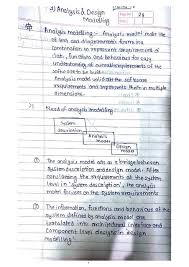 3) Analysis & Design
Modelling
24
Analysis modelling :- Analysis model make use
of text and diagrammatic forms in a
combination to represent requirement of
data, functions and behaviour for easy
understanding of overall requirements of the
software to be built.
Analysis model validate the software
requirements and represents them in multiple
dimensions.
Need of analysis modelling
System
description
Analysis
model
Design
model
① The analysis model acts as a bridge between
system description and design model.
all the requirements at the system
level in "system description", the analysis
model focuses on the software requirements.
② The information, functions and behaviour of the
system defined by analysis model are
translated into architectural interface and
component level designs in design
modelling.